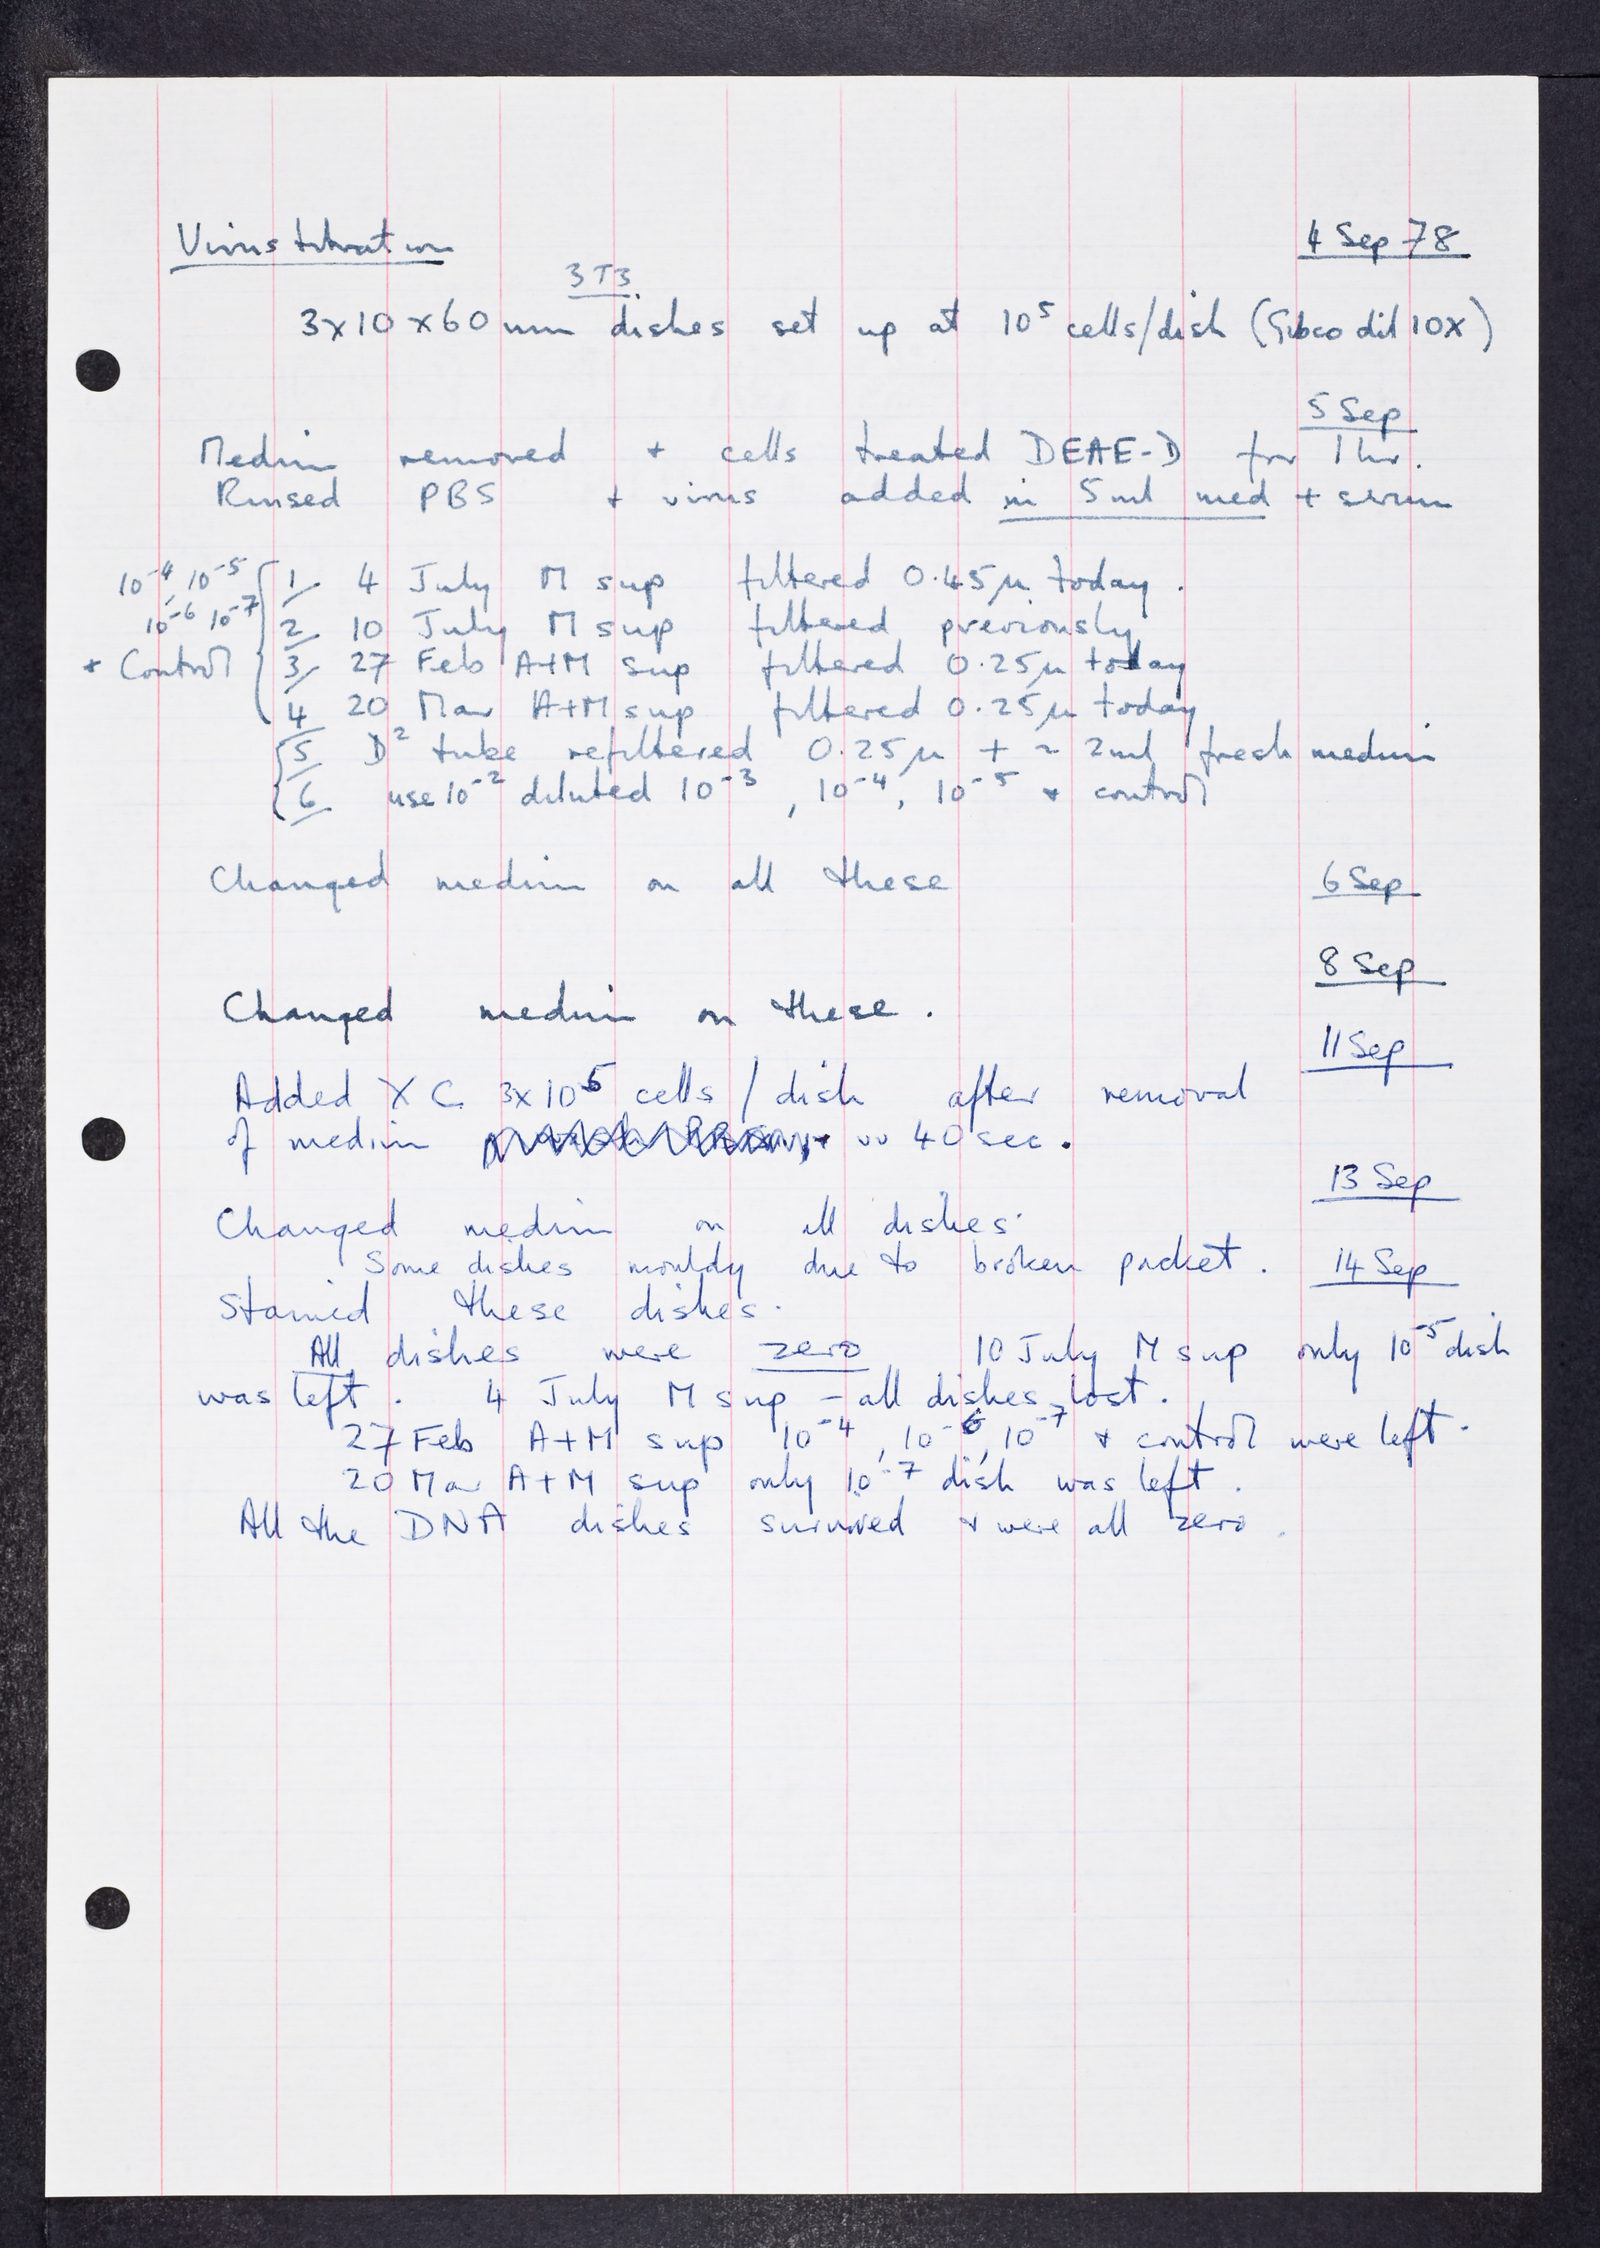 Virus titration 4 Sep 78
3T3
3x10x60mm dishes set up at 10⁵ cells/dish (Gibco dil 10X)
5 Sep
Medium removed + cells treated DEAE-D for 1hr.
Rinsed PBS + virus added in 5ml med + serum
10⁻⁴, 10⁻⁵ 1 4 July M sup filtered 0.45μ today.
10⁻⁶ 10⁻⁷ 2 10 July M sup filtered previously
+ Control 3 27 Feb A+M sup filtered 0.25μ today
4 20 Mar A+M sup filtered 0.25μ today
5 D² tube refiltered 0.25μ + ~ 2ml fresh medium
6 use 10⁻² diluted 10⁻³, 10⁻⁴, 10⁻⁵ + control
Changed medium on all these 6 Sep
8 Sep
Changed medium on these.
11 Sep
Added XC 3x10⁵ cells/dish after removal
of medium uv 40sec.
13 Sep
Changed medium on all dishes.
Some dishes mouldy due to broken packet. 14 Sep
Stained these dishes.
All dishes were zero 10 July M sup only 10⁻⁵ dish
was left. 4 July M sup - all dishes lost.
27 Feb A+M sup 10⁻⁴, 10⁻⁶, 10⁻⁷ + control were left.
20 Mar A+M sup only 10⁻⁷ dish was left.
All the DNA dishes survived + were all zero.